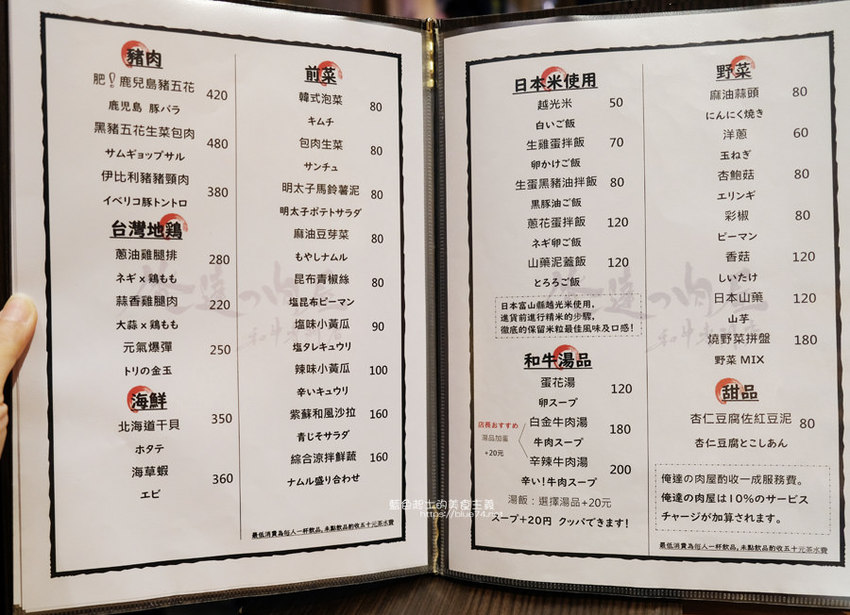 豬肉
肥!鹿兒島豬五花 420
鹿児島 豚バラ
黑豬五花生菜包肉 480
サムギョップサル
伊比利豬豬頸肉 380
イベリコ豚トントロ
台灣地鶏
蔥油雞腿排 280
ネギx鶏もも
蒜香雞腿肉 220
大蒜x鶏もも
元氣爆彈 250
トリの金玉
海鮮
北海道干貝 350
ホタテ
海草蝦 360
エビ
前菜
韓式泡菜 80
キムチ
包肉生菜 80
サンチュ
明太子馬鈴薯泥 80
明太子ポテトサラダ
麻油豆芽菜 80
もやしナムル
昆布青椒絲 80
塩昆布ピーマン
塩味小黃瓜 90
塩タレキュウリ
辣味小黃瓜 100
辛いキュウリ
紫蘇和風沙拉 160
青じそサラダ
綜合涼拌鮮蔬 160
ナムル盛り合わせ
最低消費為每人一杯飲品,未點飲品酌收五十元茶水費
日本米使用
越光米 50
白いご飯
生雞蛋拌飯 70
卵かけご飯
生蛋黑豬油拌飯 80
黒豚油ご飯
蔥花蛋拌飯 120
ネギ卵ご飯
山藥泥蓋飯 120
とろろご飯
日本富山縣越光米使用,
進貨前進行精米的步驟,
徹底的保留米粒最佳風味及口感!
和牛湯品
蛋花湯 120
卵スープ
店長おすすめ
湯品加蛋
+20元
白金牛肉湯 180
牛肉スープ
辛辣牛肉湯 200
辛い!牛肉スープ
湯飯:選擇湯品+20元
スープ+20円 クッパできます!
野菜
麻油蒜頭 80
にんにく焼き
洋蔥 60
玉ねぎ
杏鮑菇 80
エリンギ
彩椒 80
ピーマン
香菇 120
しいたけ
日本山藥 120
山芋
燒野菜拼盤 180
野菜 MIX
甜品
杏仁豆腐佐紅豆泥 80
杏仁豆腐とこしあん
俺達の肉屋酌收一成服務費。
俺達の肉屋は10%のサービス
チャージが加算されます。
最低消費為每人一杯飲品,未點飲品酌收五十元茶水費
藍色起士的美食主義
https://blue74.net